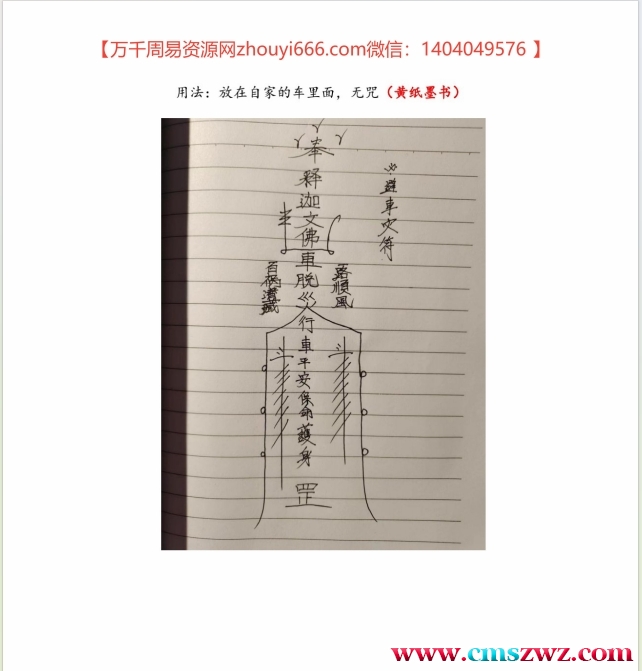 【万千周易资源网zhouyi666.com微信：1404049576 】
用法：放在自家的车里面，无咒（黄纸墨书）
避車灾符
奉
釋迦文佛
車脫災
行車平安保命護身
罡
百祸潛藏
路順風
斗
斗
www.cmszwz.com